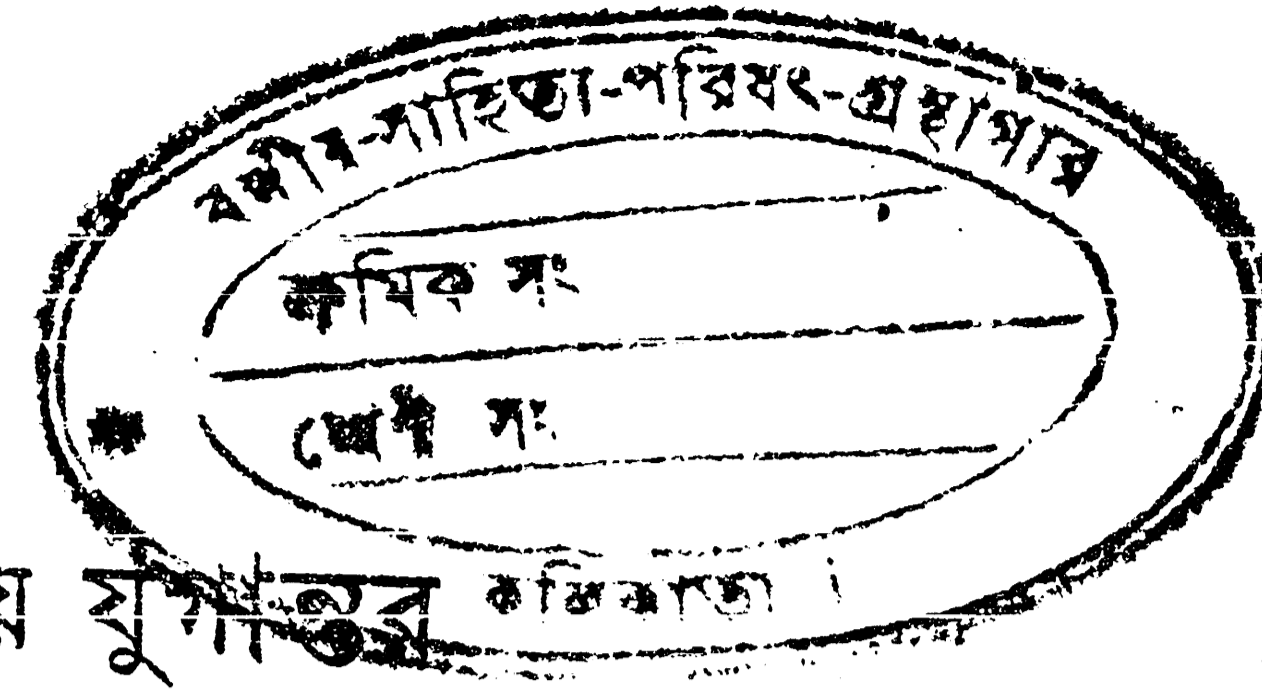 বঙ্গীয়-সাহিত্য-পরিষৎ-গ্রন্থাগার
ক্রমিক সং
শ্রেণী সং
কলিকাতা ।
যুগান্তর